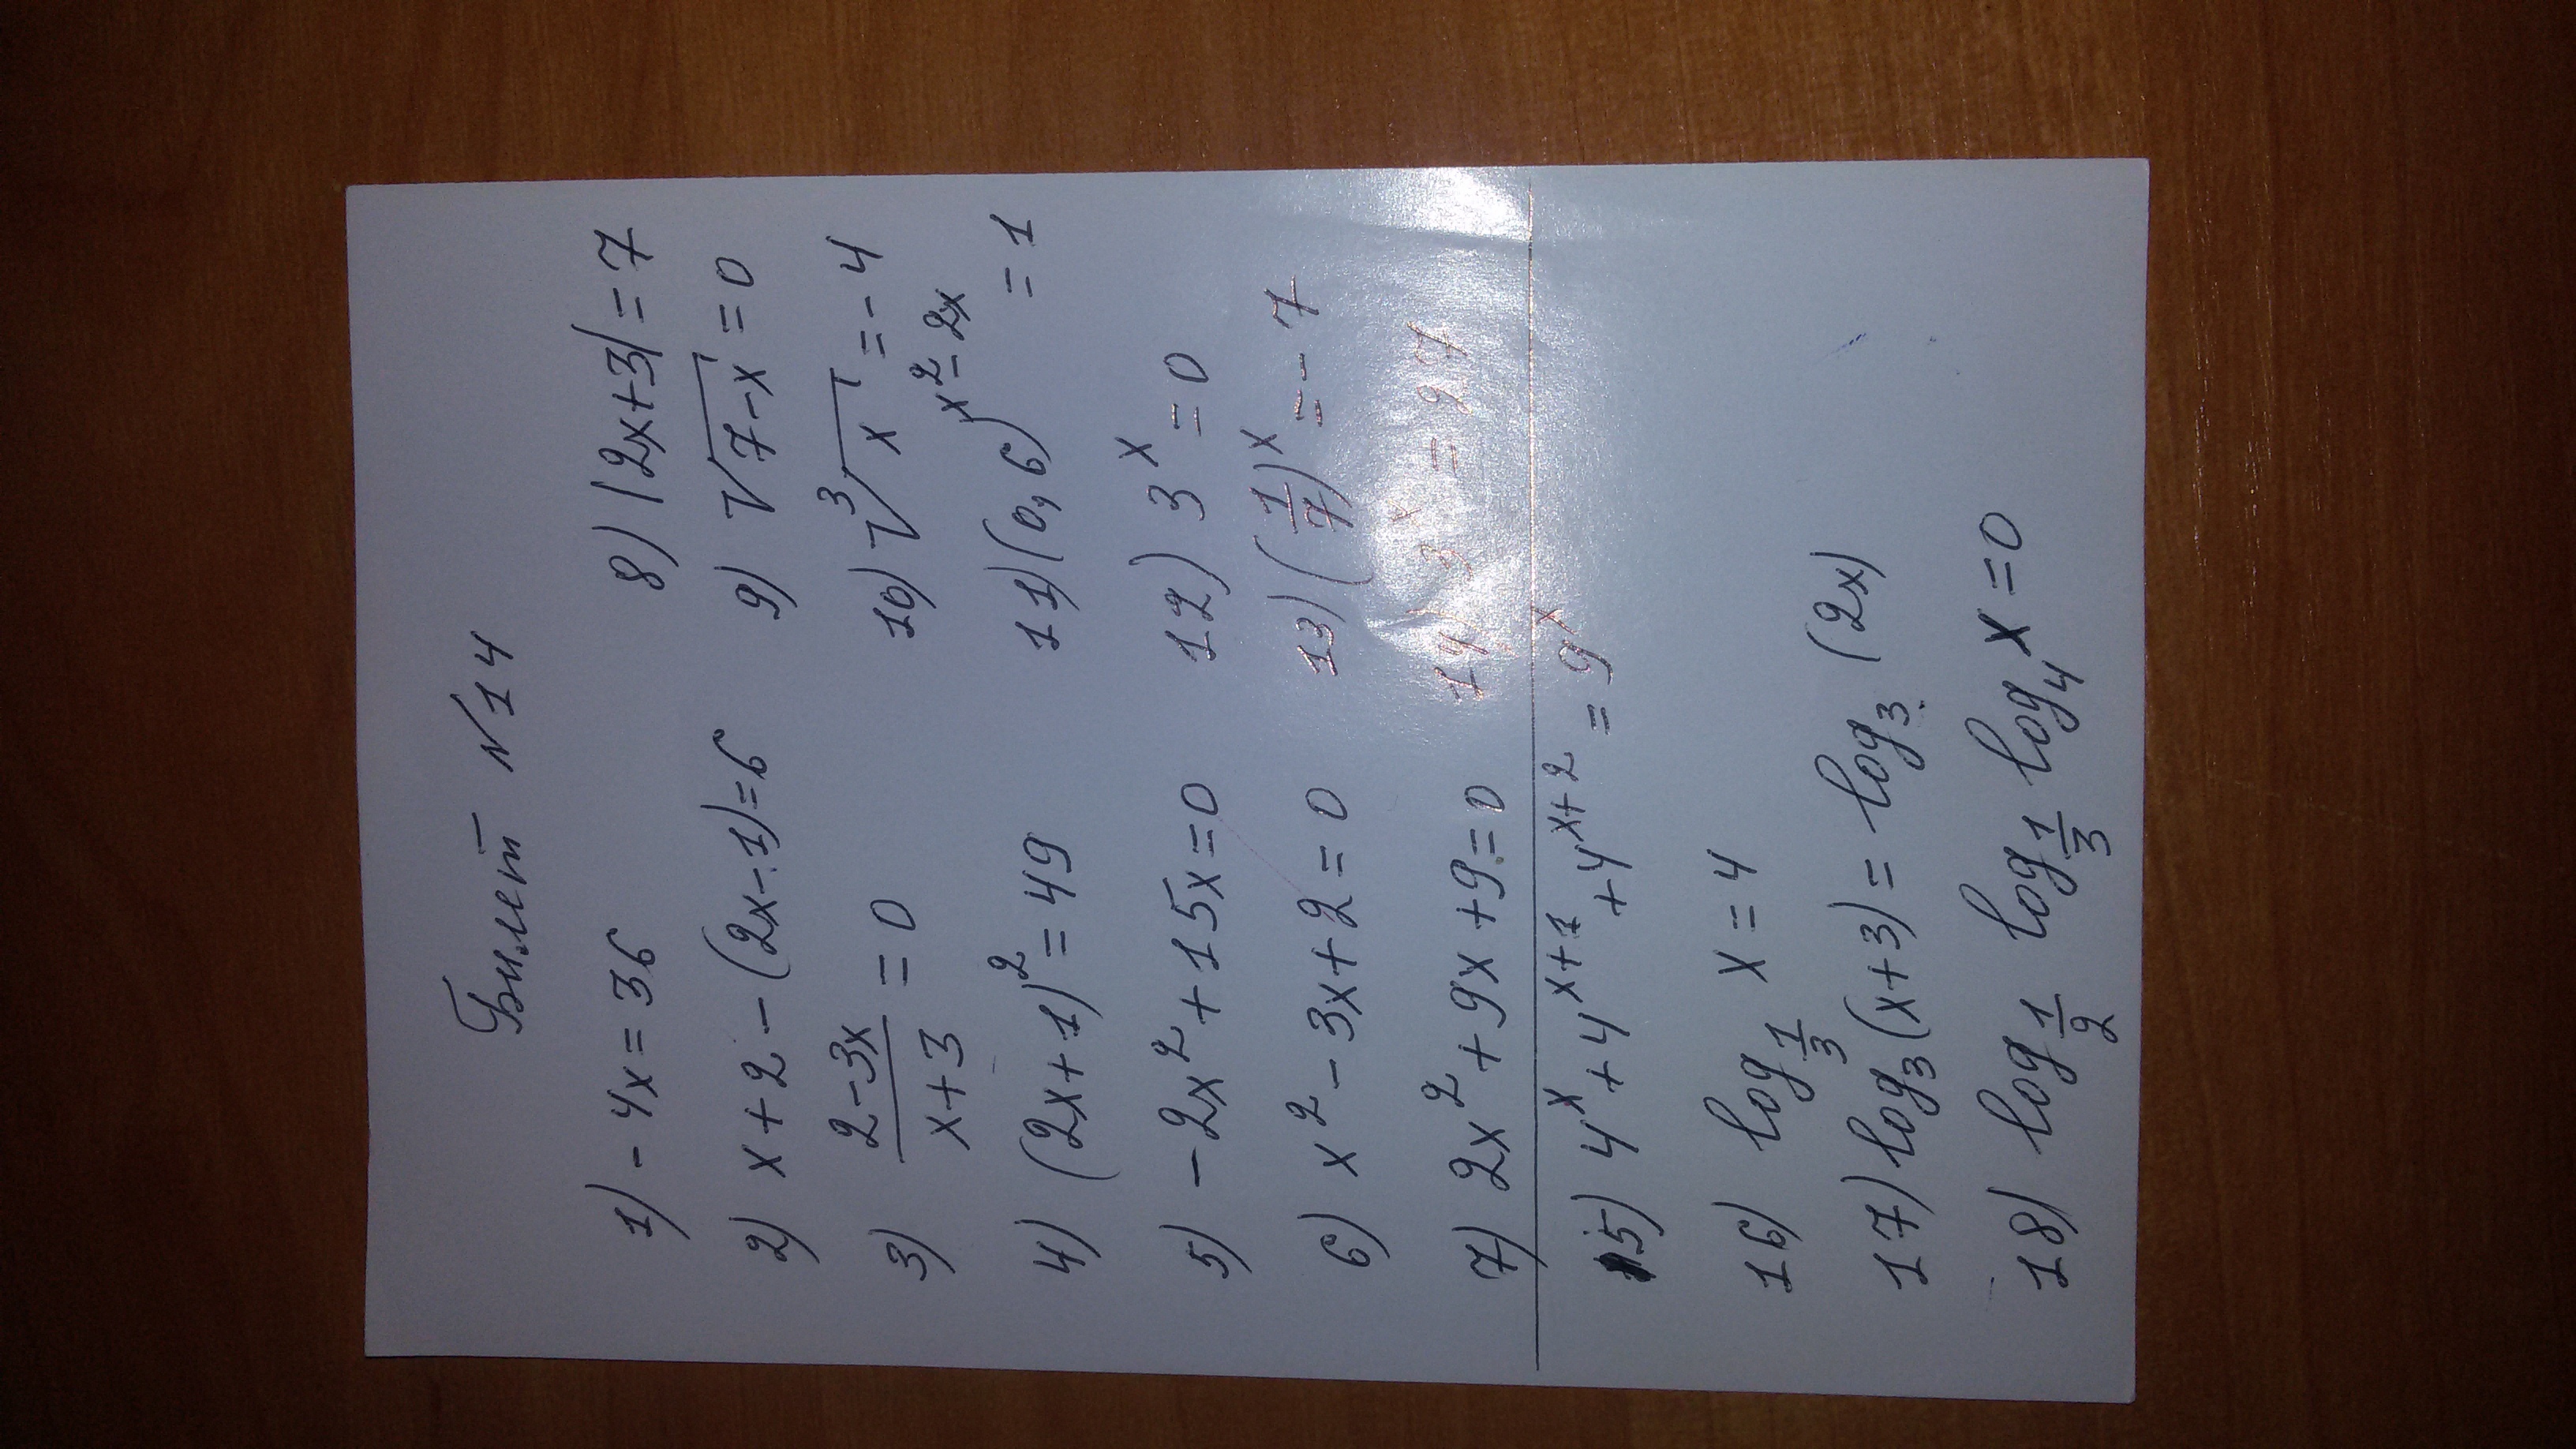 Билет №14
1) -4x = 36
2) x+2-(2x-1)=6
3) (2-3x)/(x+3) = 0
4) (2x+1)² = 49
5) -2x²+15x=0
6) x²-3x+2=0
7) 2x²+9x+9=0
8) |2x+3|=7
9) √(7-x) = 0
10) ³√x = -4
11) (0,6)^(x²-2x) = 1
12) 3^x = 0
13) (1/7)^x = -7
14) 3^x = 27
15) 4^x + 4^(x+1) + 4^(x+2) = 9^x
16) log_(1/3) x = 4
17) log_3 (x+3) = log_3 (2x)
18) log_(1/2) log_(1/3) log_4 x = 0